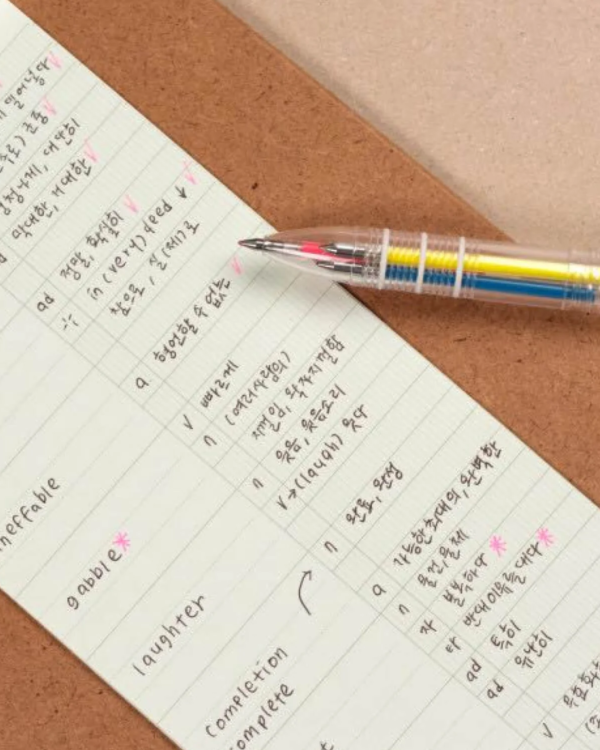 엄청나게, 대단히
막대한, 거대한
ad 정말, 확실히
in (very) deed ↓
참으로, 실(제)로
ineffable a. 형언할 수 없는
gabble* v 빠르게
n (여러사람의)
지껄임, 왁자지껄함
laughter n 웃음, 웃음소리
v→(laugh) 웃다
completion n 완료, 완성
complete a 가능한최대의, 완벽한
n
자 불복하다*
타 반대이유를 대다*
ad 특히
ad 유난히
v